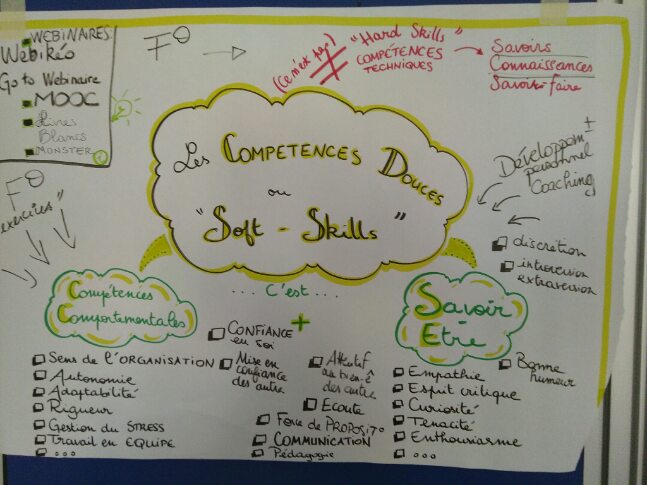 WEBINAIRES
Webikéo
Go to Webinaire
MOOC
Livres
Blancs
MONSTER
F°
(ce n'est pas)
"Hard Skills"
COMPÉTENCES
TECHNIQUES
Savoirs
Connaissances
Savoir-faire
Les COMPETENCES DOUCES
ou
"Soft-Skills"
±
Développem
personnel
Coaching
discretion
introversion
extraversion
F°
exercices"
... C'est ...
Compétences
Comportementales
Sens de l'ORGANISATION
Autonomie
Adaptabilité
Rigueur
Gestion du STRESS
Travail en EQUIPE
...
+
CONFIANCE
en soi
Mise en
confiance
des autres
Attentif
au bien-ê
des autres
Ecoute
Force de PROPOSIT°
COMMUNICATION
Pédagogie
Savoir
Etre
Empathie
Esprit critique
Curiosité
Tenacité
Enthousiasme
...
Bonne
humeur